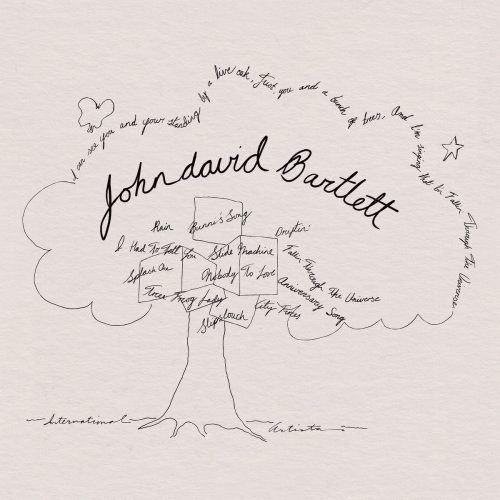 I can see you and your standing by a live oak, Just you and a bunch of trees, And I'm singing that I'm Fallin Through The Universe.
Johndavid Bartlett
Rain
Bunni's Song
Driftin'
I Had To Tell You
Slide Machine
Splash One
Nobody To Love
Fallin Through The Universe
Three Frog Lady
Anniversary Song
City Tides
Slipslouch
International Artists